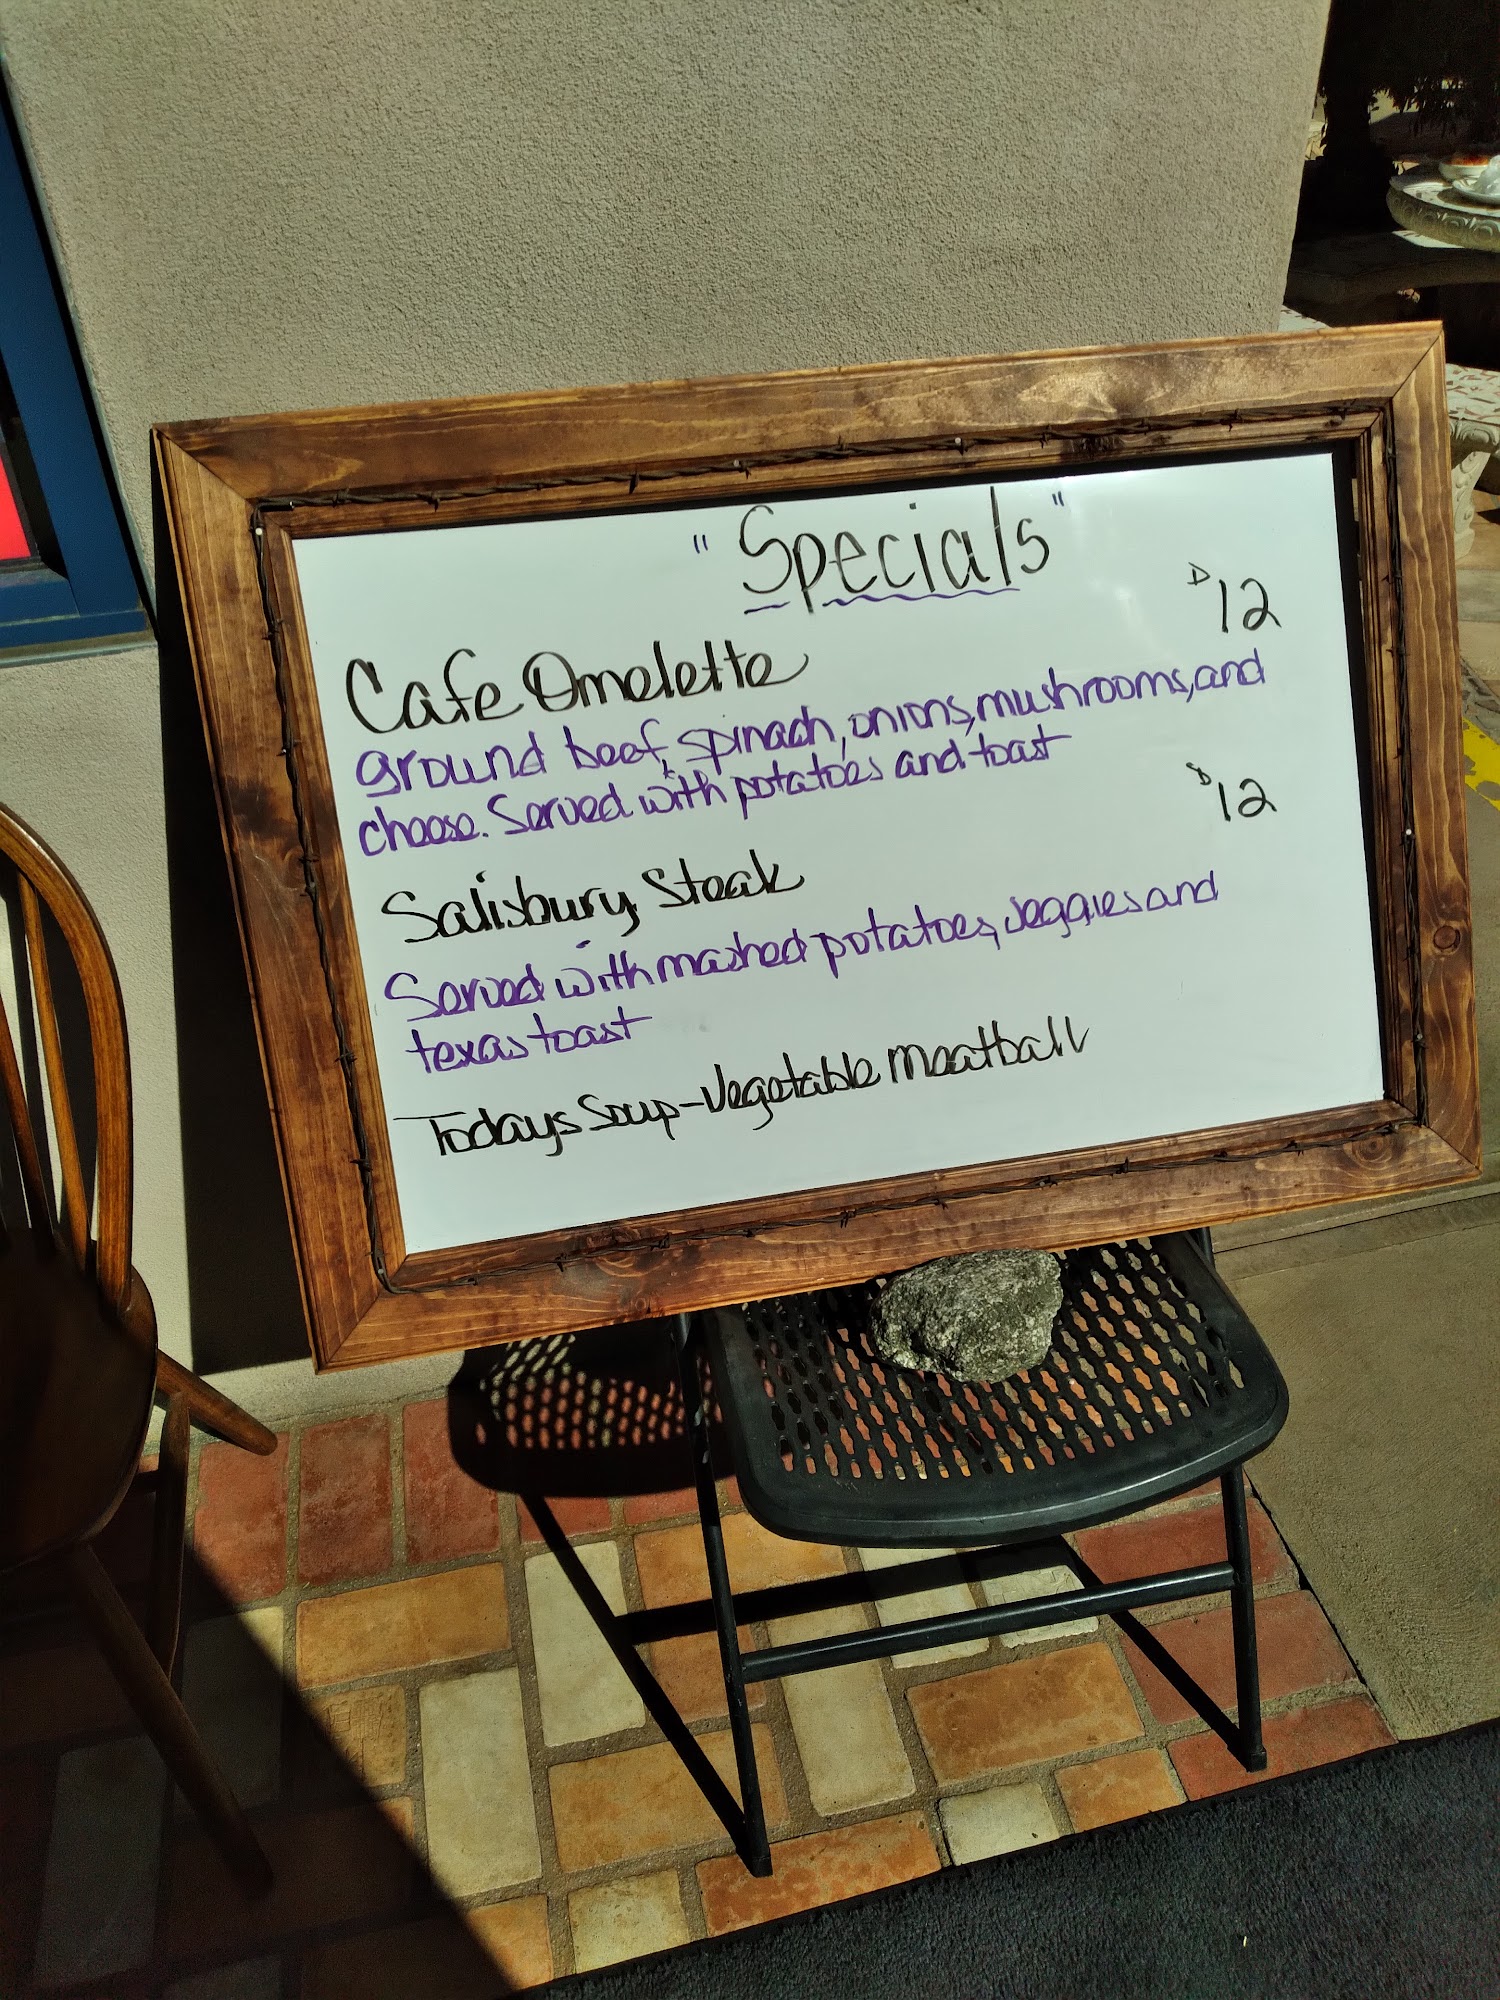 "Specials"
Cafe Omelette $12
ground beef, spinach, onions, mushrooms, and
cheese. Served with potatoes and toast
Salisbury Steak $12
Served with mashed potatoes, veggies and
texas toast
Todays Soup - Vegetable Meatball